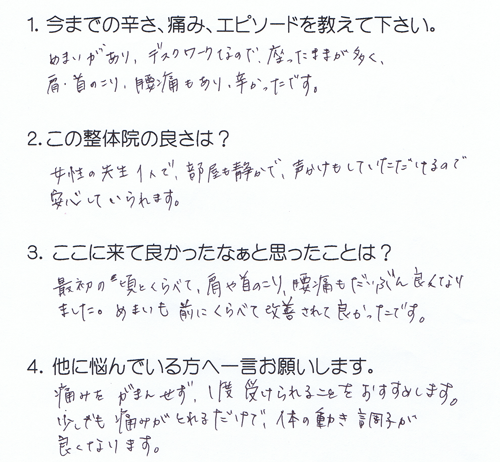 1. 今までの辛さ、痛み、エピソードを教えて下さい。
めまいがあり、デスクワークなので、座ったままが多く、
肩・首のこり、腰痛もあり、辛かったです。
2. この整体院の良さは？
女性の先生1人で、部屋も静かで、声かけもしていただけるので
安心していられます。
3. ここに来て良かったなぁと思ったことは？
最初の頃とくらべて、肩や首のこり、腰痛もだいぶん良くなり
ました。めまいも前にくらべて改善されて良かったです。
4. 他に悩んでいる方へ一言お願いします。
痛みをがまんせず、1度受けられることをおすすめします。
少しでも痛みがとれるだけで、体の動き調子が
良くなります。